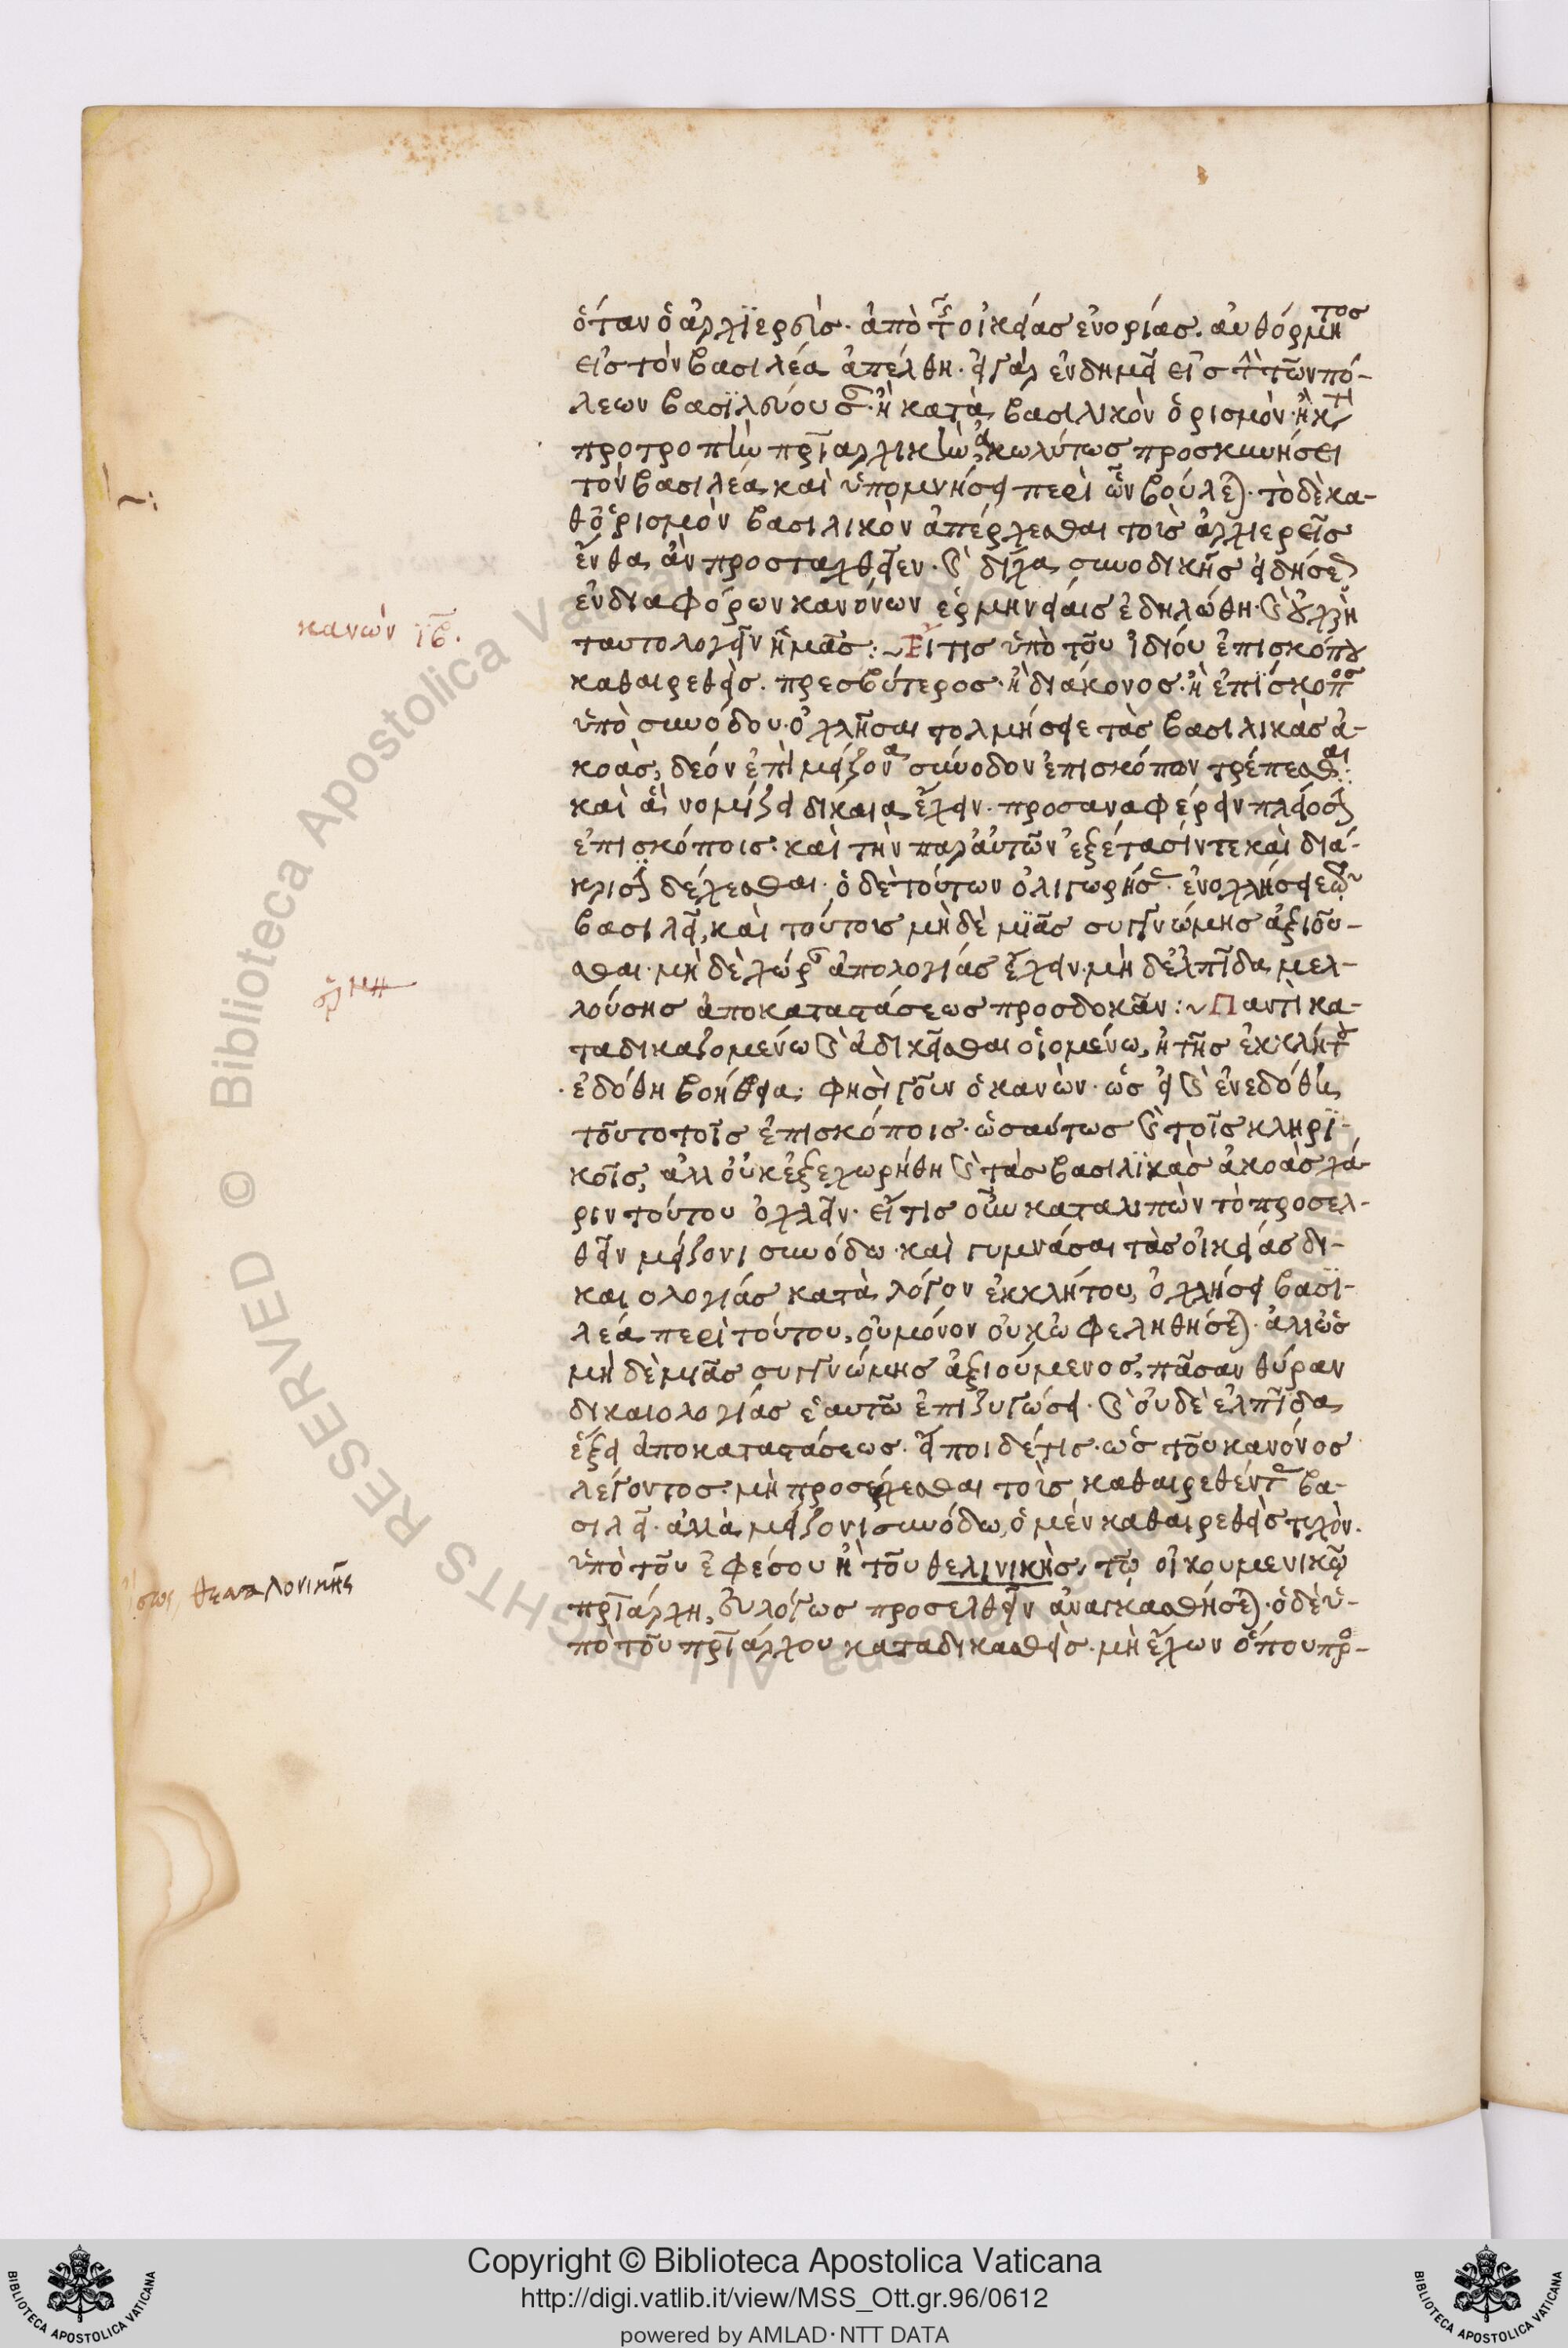 ὅταν ὁ ἀρχϊερεὺς. ἀπὸ τῆς οἰκείας ἐνορίας. αὐθόρμητος
εἰς τὸν βασιλέα ἀπέλθη. εἰ γὰρ ἐνδημεῖ εἰς τὴν τῶν πό-
λεων βασϊλεύουσαν. ἢ κατὰ βασιλικὸν ὁρισμὸν. ἢ κατὰ
προτροπὴν πριαρχικὴν, ἀκωλύτως προσκυνήσει
τὸν βασιλέα, καὶ ὑπομνήσει περὶ ὧν βούλεται. τὸ δὲ κα-
θ' ὁρισμὸν βασιλικὸν ἀπέρχεσθαι τοὺς ἀρχιερεῖς
ἔνθα ἂν προσταχθεῖεν. καὶ δίχα συνοδικῆς εἰδήσεως
ἐν διαφόρων κανόνων ἑρμηνείαις ἐδηλώθη. καὶ οὐ χρὴ
ταυτολογεῖν ἡμᾶς :~ Εἴ τις ὑπὸ τοῦ ἰδίου ἐπισκόπου
κανὼν ιβ.
καθαιρεθεὶς. πρεσβύτερος. ἢ διάκονος. ἢ ἐπίσκοπος
ὑπὸ συνόδου. ὀχλῆσαι τολμήσειε τὰς βασιλικὰς ἀ-
κοὰς, δέον ἐπὶ μείζονα σύνοδον ἐπισκόπων τρέπεσθαι.
καὶ ἃ νομίζει δίκαια ἔχειν. προσαναφέρειν πλείοσιν
ἐπισκόποις. καὶ τὴν παρ' αὐτῶν ἐξέτασίν τε καὶ διά-
κρισιν δέχεσθαι. ὁ δὲ τούτων ὀλιγωρήσας. ἐνοχλήσειε τῷ
βασιλεῖ, καὶ τούτοις μὴ δὲ μϊᾶς συγγνώμης ἀξιοῦ-
σθαι. μὴ δὲ χώραν ἀπολογίας ἔχειν. μὴ δ' ἐλπίδα μελ-
λούσης ἀποκαταστάσεως προσδοκᾶν :~ Παντὶ κα-
ταδικαζομένω καὶ ἀδικεῖσθαι οἰομένω, ἡ τῆς ἐκκλήτου
ἐδόθη βοήθεια. φησὶ γοῦν ὁ κανὼν. ὡς εἰ καὶ ἐνεδόθη
τοῦτο τοῖς ἐπισκόποις. ὡσαύτως καὶ τοῖς κληρϊ-
κοῖς, ἀλλ' οὐκ ἐξεχωρήθη καὶ τὰς βασιλϊκὰς ἀκοὰς χά-
ριν τούτου ὀχλεῖν. εἴ τις οὖν καταλιπὼν τὸ προσελ-
θεῖν μείζονι συνόδω. καὶ γυμνάσαι τὰς οἰκείας δι-
καιολογίας κατὰ λόγον ἐκκλήτου, ὀχλήσει βασϊ-
λέα περὶ τούτου, οὐ μόνον οὐκ ὠφεληθήσεται. ἀλλ' ὡς
μὴ δὲ μιᾶς συγγνώμης ἀξιούμενος, πᾶσαν θύραν
δικαιολογίας ἑαυτῶ ἐπιζυγώσει. καὶ οὐδὲ ἐλπίδα
ἕξει ἀποκαταστάσεως. εἴποι δέ τις. ὡς τοῦ κανόνος
λέγοντος. μὴ προσέρχεσθαι τοὺς καθαιρεθέντας βα-
σιλεῖ. ἀλλὰ μείζονι συνόδω, ὁ μὲν καθαιρεθεὶς τυχὸν.
ὑπὸ τοῦ ἐφέσου ἢ τοῦ θελινικὴς, τῷ οἰκουμενικῷ
ἴσως θεσσαλονίκης
πριάρχη, εὐλόγως προσελθεῖν ἀναγκασθήσεται. ὁ δὲ ὑ-
πὸ τοῦ πριάρχου καταδικασθεὶς. μὴ ἔχων ὅπου προ-